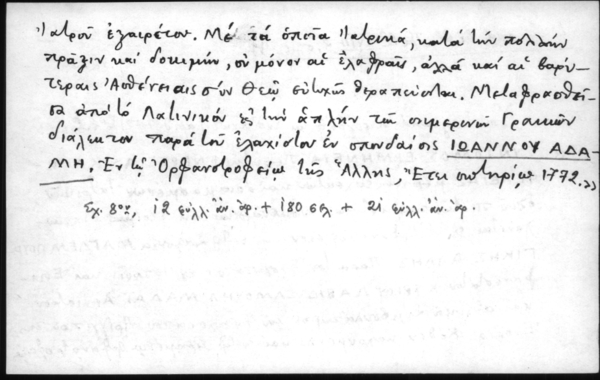 Ἰατροῦ ἐξαιρέτου. Μὲ τὰ ὁποῖα Ἰατρικὰ, κατὰ τὴν πολλὴν
πρᾶξιν καὶ δοκιμὴν, οὐ μόνον αἱ ἐλαφραῖς, ἀλλὰ καὶ αἱ βαρύ-
τεραις Ἀσθένειαις σὺν Θεῷ εὐτυχῶς θεραπεύονται. Μεταφρασθεῖ-
σα ἀπὸ τὸ Λατινικὸν εἰς τὴν ἁπλὴν τῶν σημερινῶν Γραικῶν
διάλεκτον παρὰ τοῦ ἐλαχίστου ἐν σπουδαίοις ΙΩΑΝΝΟΥ ΑΔΑ-
ΜΗ. Ἐν τῷ Ὀρφανοτροφείῳ τῆς Ἄλλης, Ἔτει σωτηρίῳ 1772.
Σχ. 8ον, 12 φύλλ. ἄν. ἀρ. + 180 σελ. + 21 φύλλ. ἄν. ἀρ.